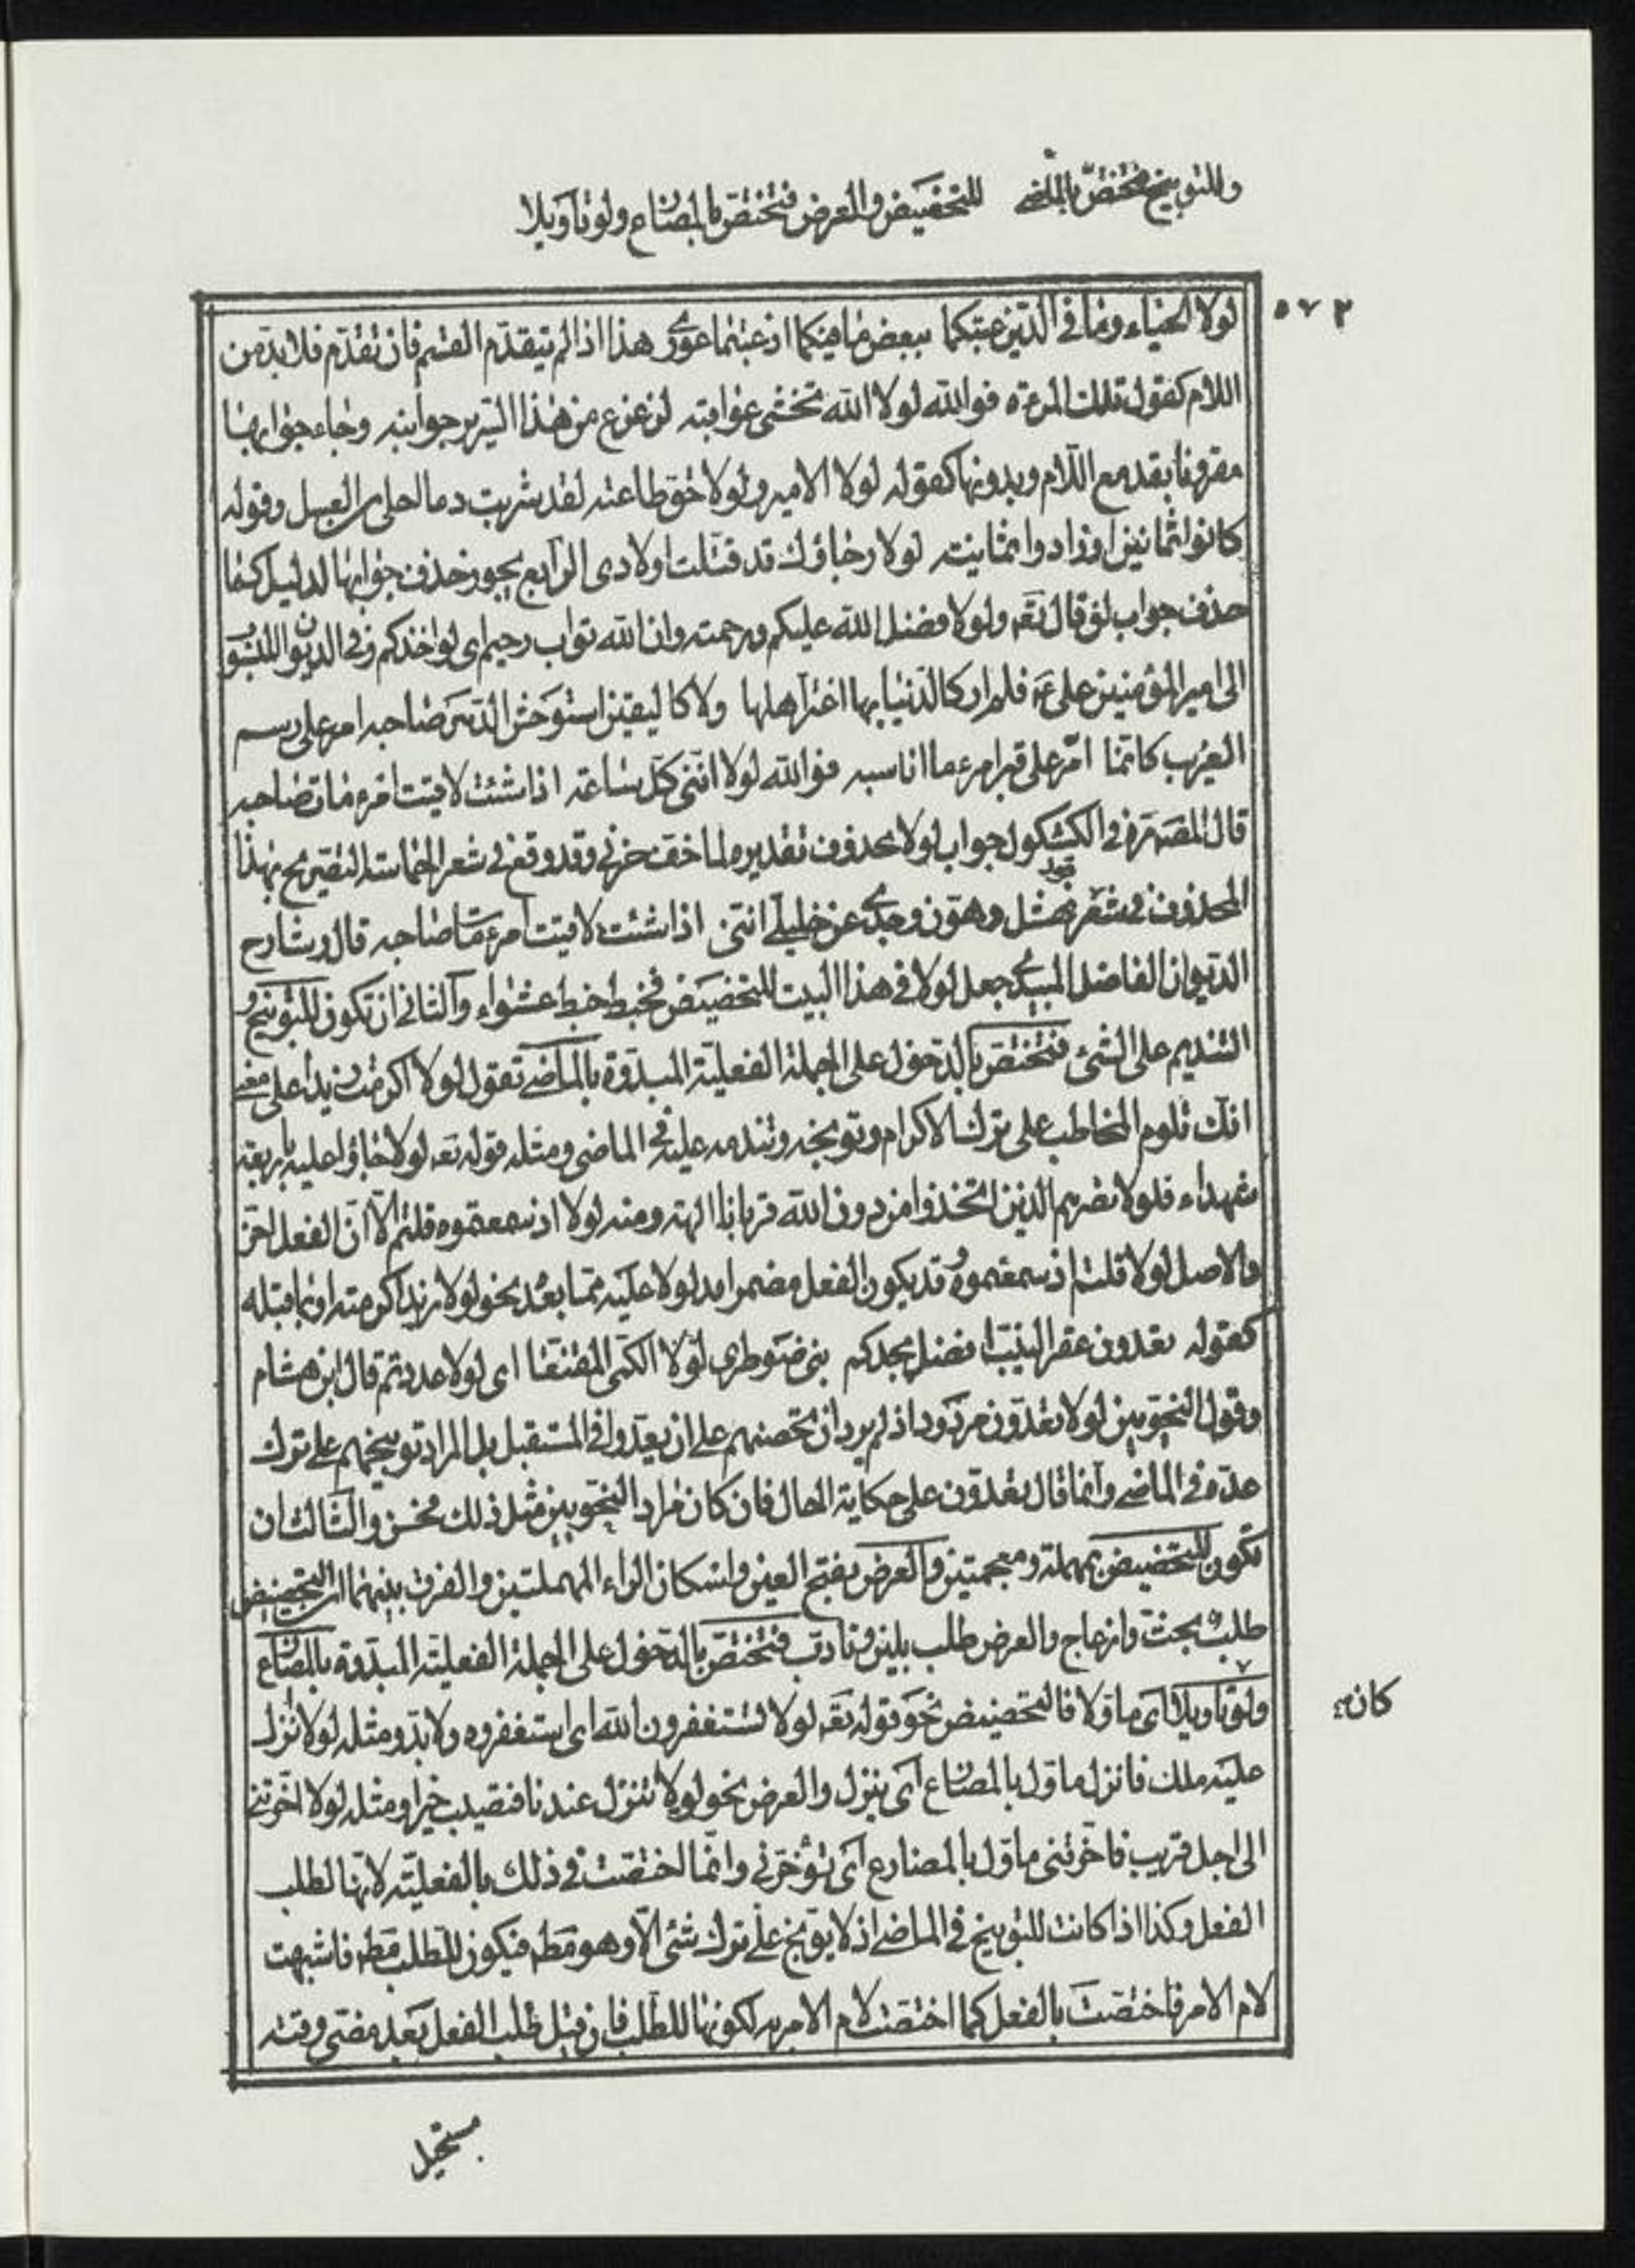 وللتوبيخ فتختص بالماضي للتحضيض والعرض فتختص بالمضارع ولو تأويلا
٥٧٢
لولا الحياء وما في الدين عبتكما ببعض ما فيكما اذ عبتما عورى هذا اذا لم يتقدم القسم فان تقدم فلا بد من
اللام كقول تلك المرءة فوالله لولا الله تخشى عواقبه لزعزع من هذا السرير جوانبه وجاء جوابها
مقرونا بقد مع اللام وبدونها كقوله لولا الامير ولولا حق طاعته لقد شربت دما احلى من العسل وقوله
كانوا ثمانين او زادوا ثمانية لولا رجاؤك قد قتلت اولادى الرابع يجوز حذف جوابها لدليل كما
حذف جواب لو قال تع ولولا فضل الله عليكم ورحمته وان الله تواب رحيم اى لواخذكم وفى الديوان المنسوب
الى امير المؤمنين على ع فلم ار كالدنيا بها اغتر اهلها ولا كاليقين استوحش الدهر صاحبه امر على رسم
القريب كانما امر على قبر امرء ما اناسبه فوالله لولا اننى كل ساعة اذا شئت لاقيت امرء مات صاحبه
قال المصنف ره فى الكشكول جواب لولا محذوف تقديره لما خف حزنى وقد وقع فى شعر الحماسة التصريح بهذا
المحذوف فى شعر نهشل وهون وجدى عن خليلى اننى اذا شئت لاقيت امرء مات صاحبه قال وشارح
الديوان الفاضل الميبدى جعل لولا فى هذا البيت للتحضيض فخبط خبط عشواء والثانى ان تكون للتوبيخ و
التنديم على الشئ فتختص بالدخول على الجملة الفعلية المبدوة بالماضى تقول لولا اكرمت زيدا على معنى
انك تلوم المخاطب على ترك الاكرام وتوبخه وتندمه عليه فى الماضى ومثله قوله تع لولا جاؤا عليه باربعة
شهداء فلولا نصرهم الذين اتخذوا من دون الله قربانا الهة ومنه لولا اذ سمعتموه قلتم الا ان الفعل اخر
والاصل لولا قلتم اذ سمعتموه وقد يكون الفعل مضمرا مدلولا عليه بما بعد نحو لولا زيدا اكرمته او بما قبله
كقوله تعدون عقر النيب افضل مجدكم بنى ضوطرى لولا الكمى المقنعا اى لولا عددتم قال ابن هشام
وقول النحويين لولا تعدون مردود اذ لم يرد ان تحضهم على ان يعدوا فى المستقبل بل المراد توبيخهم على ترك
عده فى الماضى وانما قال تعدون على حكاية الحال فان كان مراد النحويين مثل ذلك فحسن والثالث ان
تكون للتحضيض بمهملة ومعجمتين والعرض بفتح العين واسكان الراء المهملتين والفرق بينهما ان التحضيض
طلب بحث وازعاج والعرض طلب بلين وتأدب فتختص بالدخول على الجملة الفعلية المبدوة بالمضارع
ولو تأويلا اى مأولا فالتحضيض نحو قوله تع لولا تستغفرون الله اى استغفروه ولا بد ومثله لولا نزل
كان
عليه ملك فانزل مأول بالمضارع اى ينزل والعرض نحو لولا تنزل عندنا فتصيب خيرا ومثله لولا اخرتنى
الى اجل قريب فاخرتنى مأول بالمضارع اى تؤخرنى وانما اختصت فى ذلك بالفعلية لانها لطلب
الفعل وكذا اذا كانت للتوبيخ فى الماضى اذ لا يوبخ على ترك شئ الا وهو مط فيكون للطلب مط فاشبهت
لام الامر فاختصت بالفعل كما اختصت لام الامر به لكونها للطلب فان قيل طلب الفعل بعد مضى وقته
مستحيل